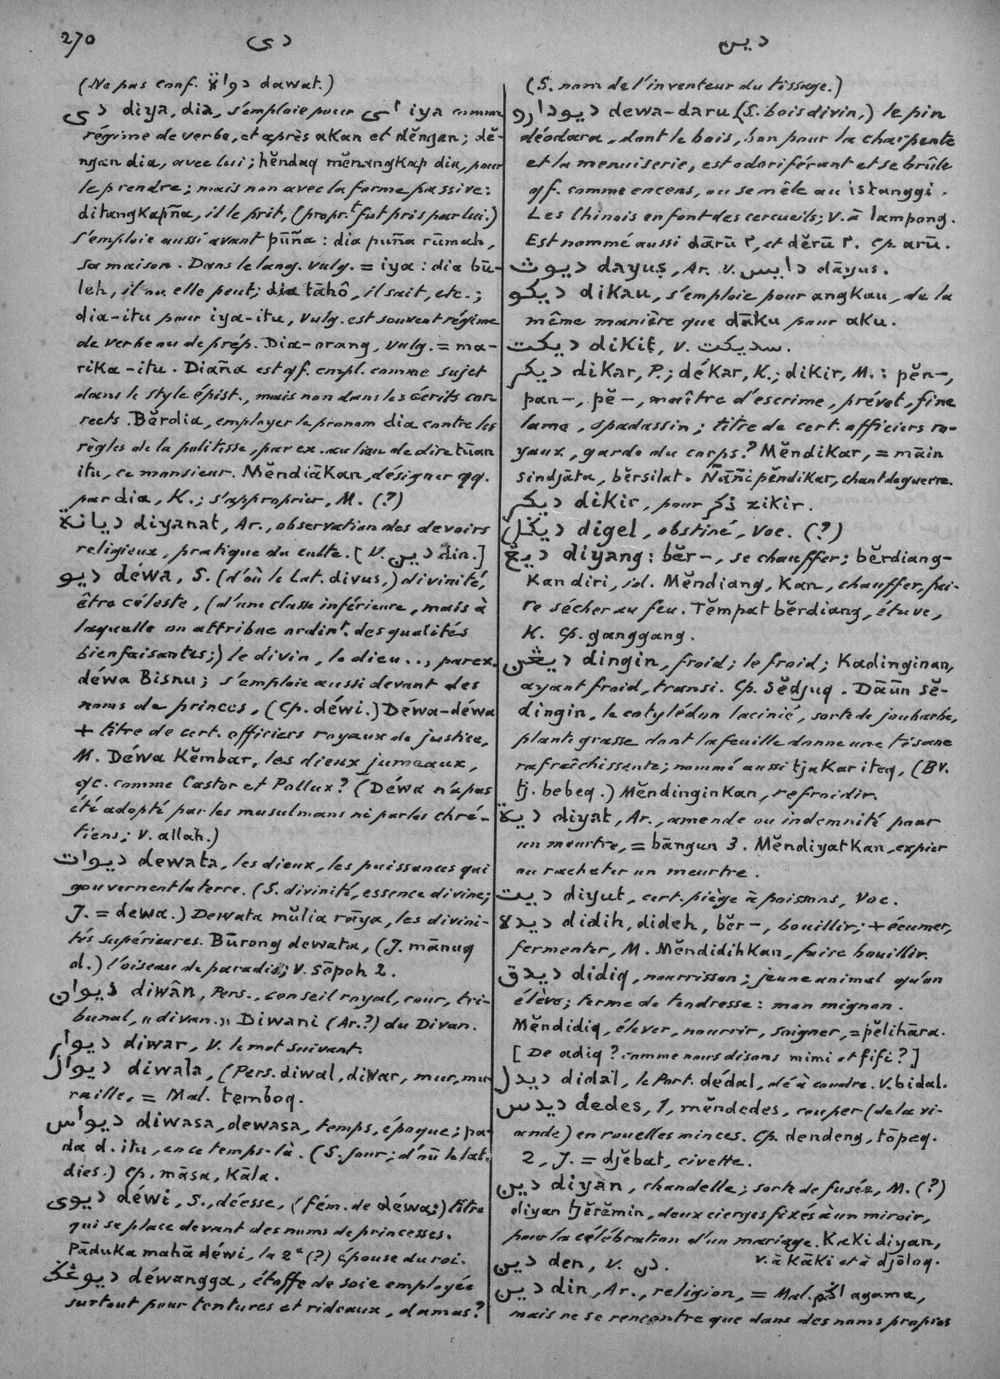 270
دی
دين
(Ne pas conf. دواة dawat.)
دی diya, dia, s'emploie pour ای iya comme
régime de verbe, et après akan et dĕngan; dĕ-
ngan dia, avec lui; hĕndaq mĕnangkap dia, pour
le prendre; mais non avec la forme passive:
ditangkapña, il le prit, (propr.t fut pris par lui.)
S'emploie aussi avant pūña: dia puña rūmah,
sa maison. Dans le lang. vulg. = iya: dia bū-
leh, il ou elle peut; dia tāhô, il sait, etc.;
dia-itu pour iya-itu, vulg. est souvent régime
de verbe ou de prép. Dia-orang, vulg. = ma-
rika-itu. Diaña est qf. empl. comme sujet
dans le style épist., mais non dans les écrits cor-
rects. Bĕrdia, employer le pronom dia contre les
règles de la politesse, par ex. au lieu de dire tūan
itu, ce monsieur. Mĕndiākan, désigner qq.
par dia, K.; s'approprier, M. (?)
ديانة diyanat, Ar., observation des devoirs
religieux, pratique du culte. [V. دين din.]
ديو déwa, S. (d'où le Lat. divus,) divinité,
être céleste, (d'une classe inférieure, mais à
laquelle on attribue ordin.t des qualités
bienfaisantes;) le divin, le dieu..., par ex.
déwa Bisnu; s'emploie aussi devant des
noms de princes, (Cp. déwi.) Déwa-déwa
+ titre de cert. officiers royaux de justice,
M. Déwa Kĕmbar, les dieux jumeaux,
qc. comme Castor et Pollux? (Déwa n'a pas
été adopté par les musulmans ni par les chré-
tiens; V. allah.)
ديوات dewata, les dieux, les puissances qui
gouvernent la terre. (S. divinité, essence divine;
J. = dewa.) Dewata mŭlia rāya, les divini-
tés supérieures. Būrong dewata, (J. mānuq
d.) l'oiseau de paradis; V. sĕpoh 2.
ديوان diwân, Pers., conseil royal, cour, tri-
bunal, "divan." Diwani (Ar.?) du Divan.
ديوار diwar, V. le mot suivant.
ديوال diwala, (Pers. diwal, diwar, mur, mu-
raille, = Mal. temboq.
ديواس diwasa, dewasa, temps, époque; pa-
da d. itu, en ce temps-là. (S. jour; d'où le lat.
dies.) Cp. māsa, kāla.
ديوی déwi, S., déesse, (fém. de déwa;) titre
qui se place devant des noms de princesses.
Pāduka mahā déwi, la 2e (?) épouse du roi.
ديوڠݢ déwangga, étoffe de soie employée
surtout pour tentures et rideaux, damas?
(S. nom de l'inventeur du tissage.)
ديودارو dewa-daru, (S. bois divin,) le pin
déodara, dont le bois, bon pour la charpente
et la menuiserie, est odoriférant et se brûle
qf. comme encens, ou se mêle au istanggi.
Les Chinois en font des cercueils; V. à lampong.
Est nommé aussi dārū ?, et dĕrū ?. Cp. arū.
ديوث dayuṣ, Ar. V. دايس dāyus.
ديكو dikau, s'emploie pour angkau, de la
même manière que dāku pour aku.
ديكت dikit, V. سديكت.
ديكر dikar, P.; dékar, K.; dikir, M.: pĕn-,
pan-, pĕ-, maître d'escrime, prévot, fine
lame, spadassin; titre de cert. officiers ro-
yaux, garde du corps? Mĕndikar, = māin
sindjāta, bĕrsilat. Ñāñi pĕndikar, chant de guerre.
ديكر dikir, pour ذكر zikir.
ديݢل digel, obstiné, Voc. (?)
ديڠ diyang: bĕr-, se chauffer; bĕrdiang-
kan diri, id. Mĕndiang, kan, chauffer, fai-
re sécher au feu. Tĕmpat bĕrdiang, étuve,
K. Cp. ganggang.
ديڠن dingin, froid; le froid; Kadinginan,
ayant froid, transi. Cp. sĕdjuq. Dāūn sĕ-
dingin, le cotylédon lacinié, sorte de joubarbe,
plante grasse dont la feuille donne une tisane
rafraîchissante; nommé aussi tjakar iteq, (Bv.
tj. bebeq.) Mĕndinginkan, refroidir.
دية diyat, Ar., amende ou indemnité pour
un meurtre, = bāngun 3. Mĕndiyatkan, expier
ou racheter un meurtre.
ديت diyut, cert. piège à poissons, Voc.
ديده didih, dideh, bĕr-, bouillir; + écumer,
fermenter, M. Mĕndidihkan, faire bouillir.
ديدق didiq, nourrisson; jeune animal qu'on
élève; terme de tendresse: mon mignon.
Mĕndidiq, élever, nourrir, soigner, = pĕlihāra.
[De adiq? comme nous disons mimi et fifi?]
ديدل didal, le Port. dédal, dé à coudre. V. bidal.
ديدس dedes, 1, mĕndedes, couper (de la vi-
ande) en rouelles minces. Cp. dendeng, tōpeq.
2, J. = djĕbat, civette.
ديين diyān, chandelle; sorte de fusée, M. (?)
diyan tjĕrĕmin, deux cierges fixés à un miroir,
pour la célébration d'un mariage. Kaki diyan,
V. à kāki et à djōloq.
دين den, V. دن.
دين din, Ar., religion, = Mal. اݢم agama,
mais ne se rencontre que dans des noms propres